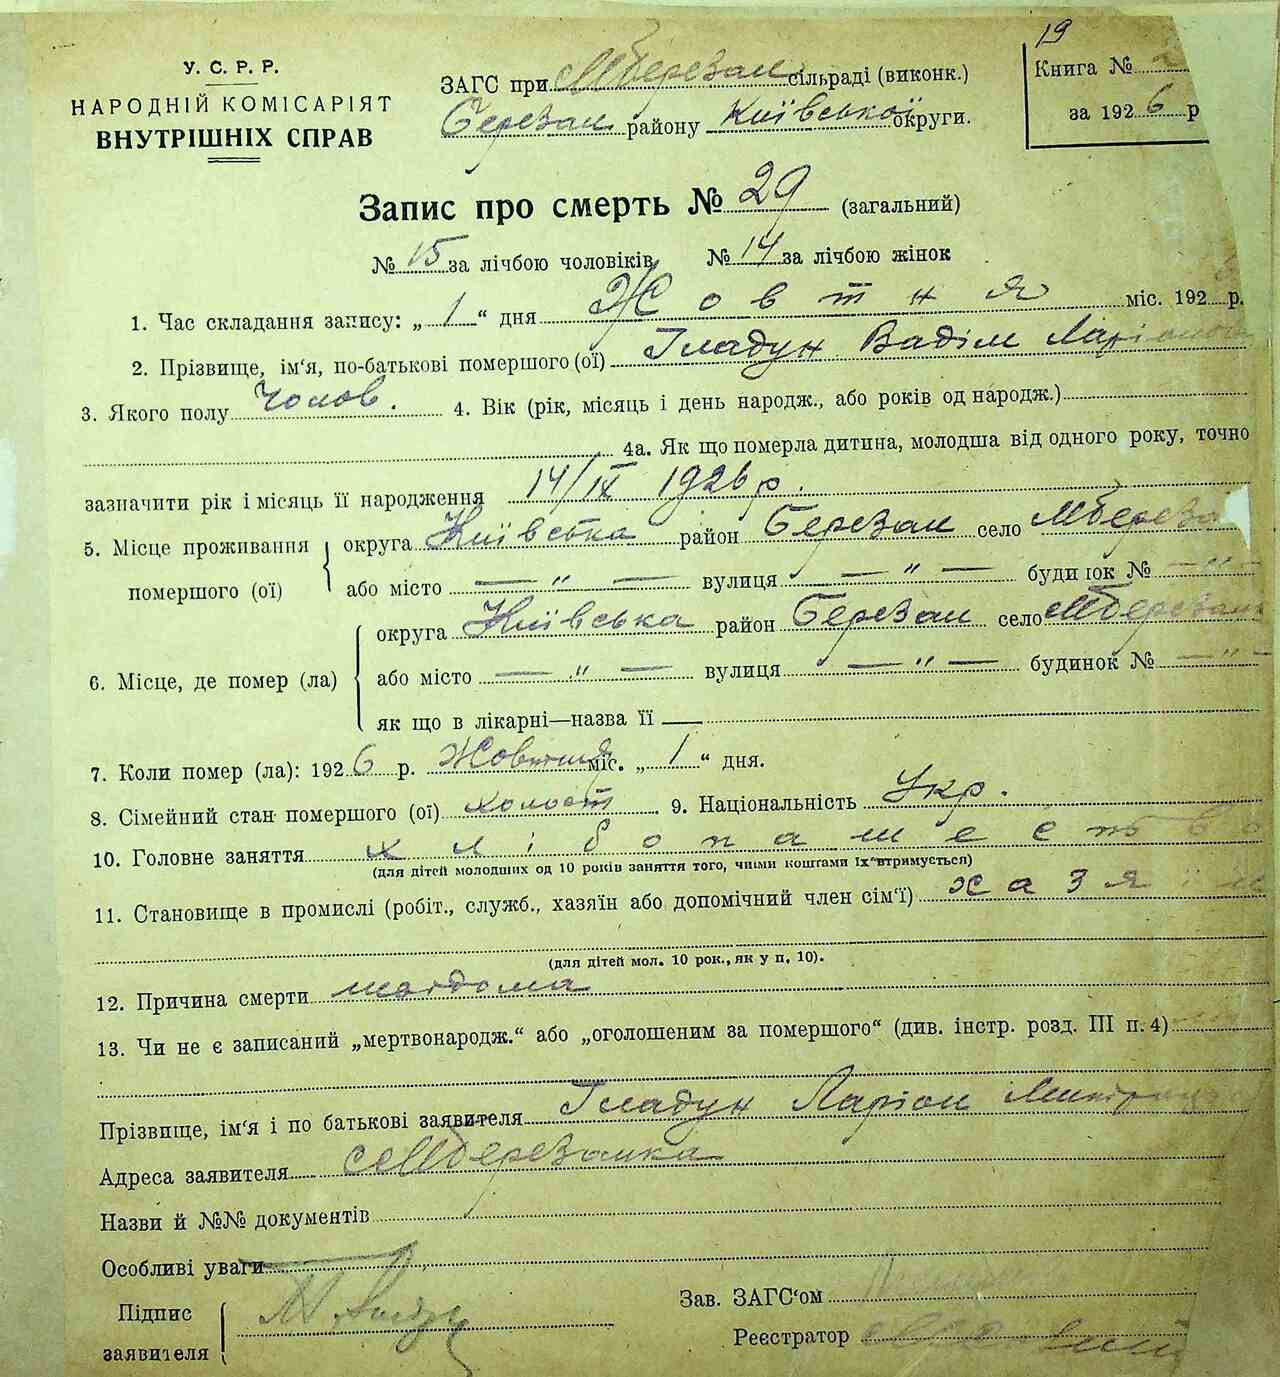 19
У. С. Р. Р.
НАРОДНІЙ КОМІСАРІЯТ
ВНУТРІШНІХ СПРАВ
ЗАГС при МБерезан сільраді (виконк.)
Березан району Київської округи.
Книга №
за 1926 р
Запис про смерть № 29 (загальний)
№ 15 за лічбою чоловіків № 14 за лічбою жінок
1. Час складання запису: „1“ дня Жовтня міс. 192 р.
2. Прізвище, ім'я, по-батькові помершого (ої) Гладун Вадім Ларіонов
3. Якого полу Чолов. 4. Вік (рік, місяць і день народж., або років од народж.)
4а. Як що померла дитина, молодша від одного року, точно
зазначити рік і місяць її народження 14/IX 1926 р.
5. Місце проживання помершого (ої) округа Київська район Березан село МБереза
або місто — " — вулиця — " — будинок № — " —
6. Місце, де помер (ла) округа Київська район Березан село МБерезан
або місто — " — вулиця — " — будинок № — " —
як що в лікарні—назва її —
7. Коли помер (ла): 1926 р. Жовтня міс. „1“ дня.
8. Сімейний стан помершого (ої) холост 9. Національність Укр.
10. Головне заняття хлібопашество
(для дітей молодших од 10 років заняття того, чиїми коштами їх втримується)
11. Становище в промислі (робіт., служб., хазяїн або допомічний член сім'ї) хазяїн
(для дітей мол. 10 рок., як у п. 10).
12. Причина смерти
13. Чи не є записаний „мертвонародж.“ або „оголошеним за помершого“ (див. інстр. розд. III п. 4)
Прізвище, ім'я і по батькові заявителя Гладун Ларіон
Адреса заявителя с МБерезанка
Назви й №№ документів
Особливі уваги
Підпис заявителя
Зав. ЗАГС'ом
Реєстратор